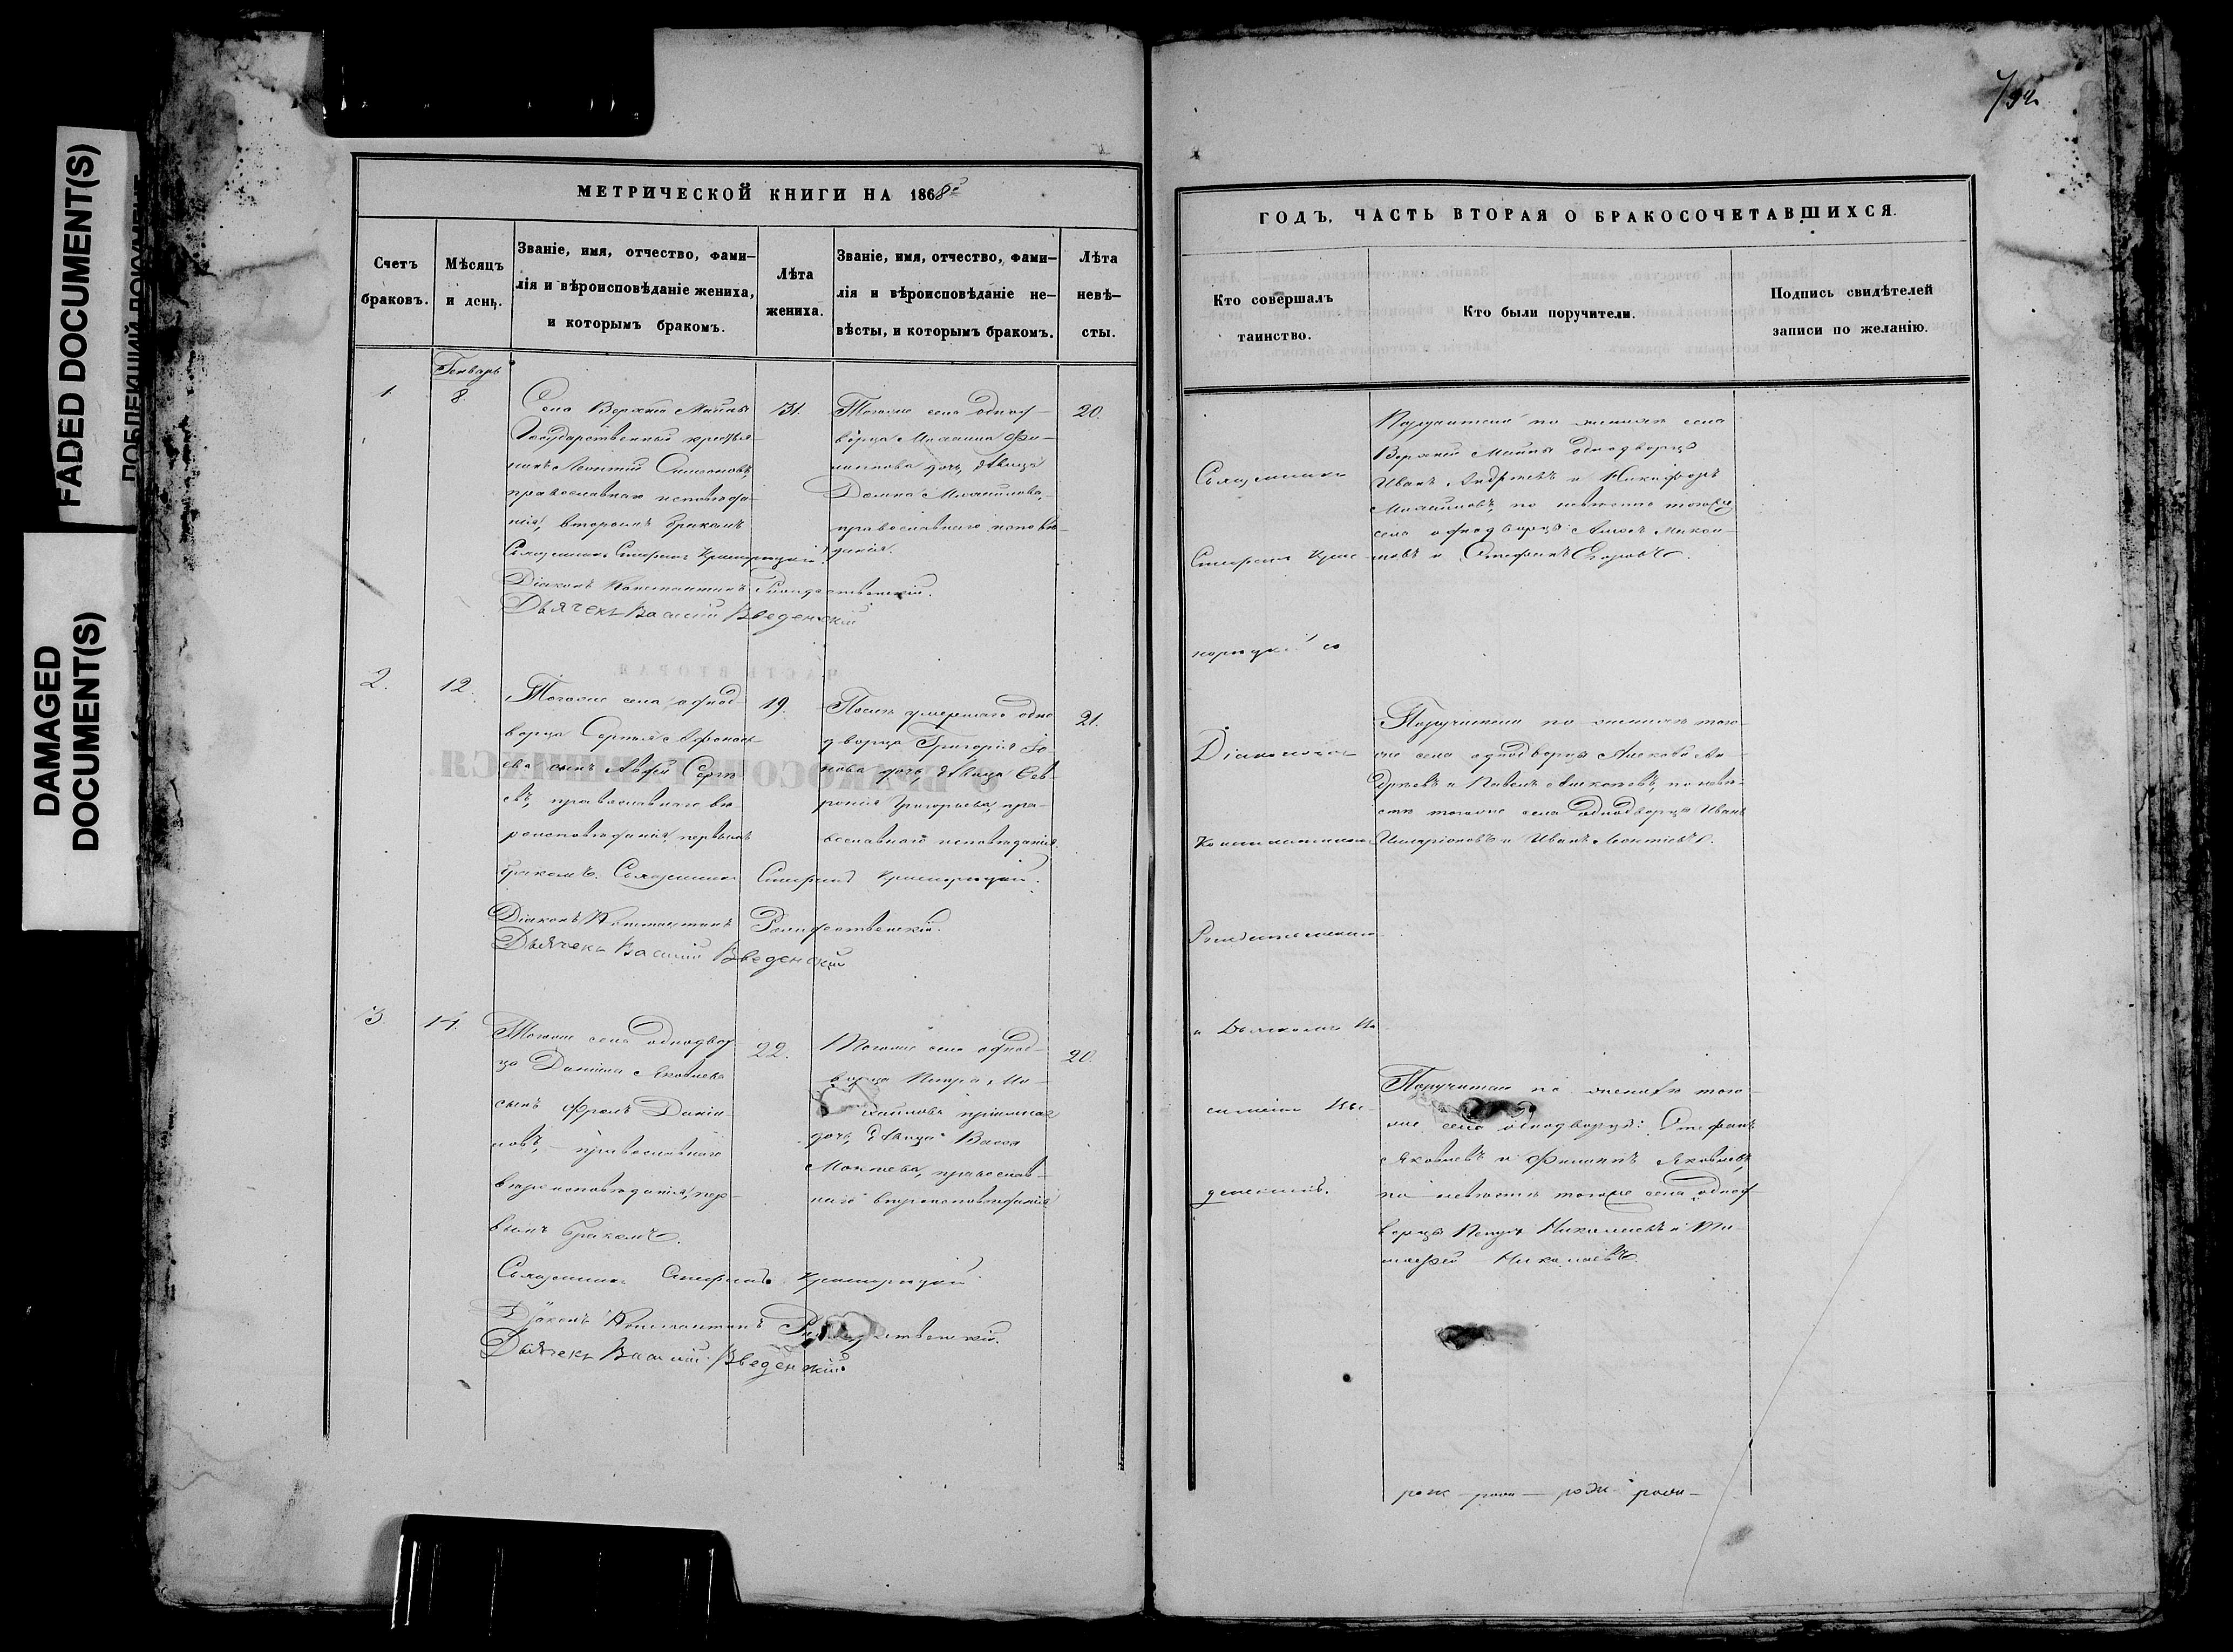 FADED DOCUMENT(S)
DAMAGED
DOCUMENT(S)
МЕТРИЧЕСКОЙ КНИГИ НА 1868й
Счетъ
браковъ.
Мѣсяцъ
и день.
Званіе, имя, отчество, фами–
лія и вѣроисповѣданіе жениха,
и которымъ бракомъ.
Лѣта
жениха.
Званіе, имя, отчество, фами–
лія и вѣроисповѣданіе не–
вѣсты, и которымъ бракомъ.
Лѣта
невѣ–
сты.
Генварь
1.
8.
Села Верхней Майны
Государственный крестья-
нинъ Леонтій Симоновъ,
православнаго исповѣда-
нія, вторымъ бракомъ
Священникъ Стефанъ
Діаконъ Константинъ Рождественскій.
Дьячекъ Василій Введенскій
31.
Тогоже села однод-
ворца Михаила Фи-
липпова дочь, дѣвица
Домна Михайлова,
православнаго исповѣ-
данія.
20.
2.
12.
Тогоже села однод-
ворца Сергѣя Афонась-
ева сынъ Авдѣй Сергѣ-
евъ, православнаго вѣ-
роисповѣданія, первымъ
бракомъ. Священникъ Стефанъ
Діаконъ Константинъ Рождественскій.
Дьячекъ Василій Введенскій
19.
Послѣ умершаго одно
дворца Григорія
дочь, дѣвица Фев-
ронія Григорьева, пра-
вославнаго исповѣданія.
21.
3.
14.
Тогоже села однодвор-
ца Даніила Яковлева
сынъ Фролъ Даніи-
ловъ, православнаго
вѣроисповѣданія, пер-
вымъ бракомъ.
Священникъ Стефанъ
Діаконъ Константинъ Рождественскій.
Дьячекъ Василій Введенскій
22.
Тогоже села однод-
ворца Петра Ми-
хайлова
дочь, дѣвица Васса
православ-
наго вѣроисповѣданія
20.
ГОДЪ, ЧАСТЬ ВТОРАЯ О БРАКОСОЧЕТАВШИХСЯ.
Кто совершалъ
таинство.
Кто были поручители.
Подпись свидѣтелей
записи по желанію.
Священникъ
Стефанъ
съ
Діакономъ
Константиномъ
Рождественскимъ
и Дьячкомъ Ва-
силіемъ Вве-
денскимъ.
Поручители по женихѣ села
Верхней Майны однодворцы
Иванъ Андреевъ и Никифоръ
Михайловъ, по невѣстѣ тогоже
села однодворцы
и Стефанъ Егоровъ.
Поручители по женихѣ того-
же села однодворцы Алексѣй Ан-
дреевъ и Павелъ Алексѣевъ, по невѣ-
стѣ тогоже села однодворцы Иванъ
Иларіоновъ и Иванъ Леонтіевъ.
Поручители по женихѣ того-
же села однодворцы: Стефанъ
Яковлевъ и Филиппъ Яковлевъ,
по невѣстѣ тогоже села однод-
ворцы Петръ Николаевъ и Ти-
мофей Николаевъ.